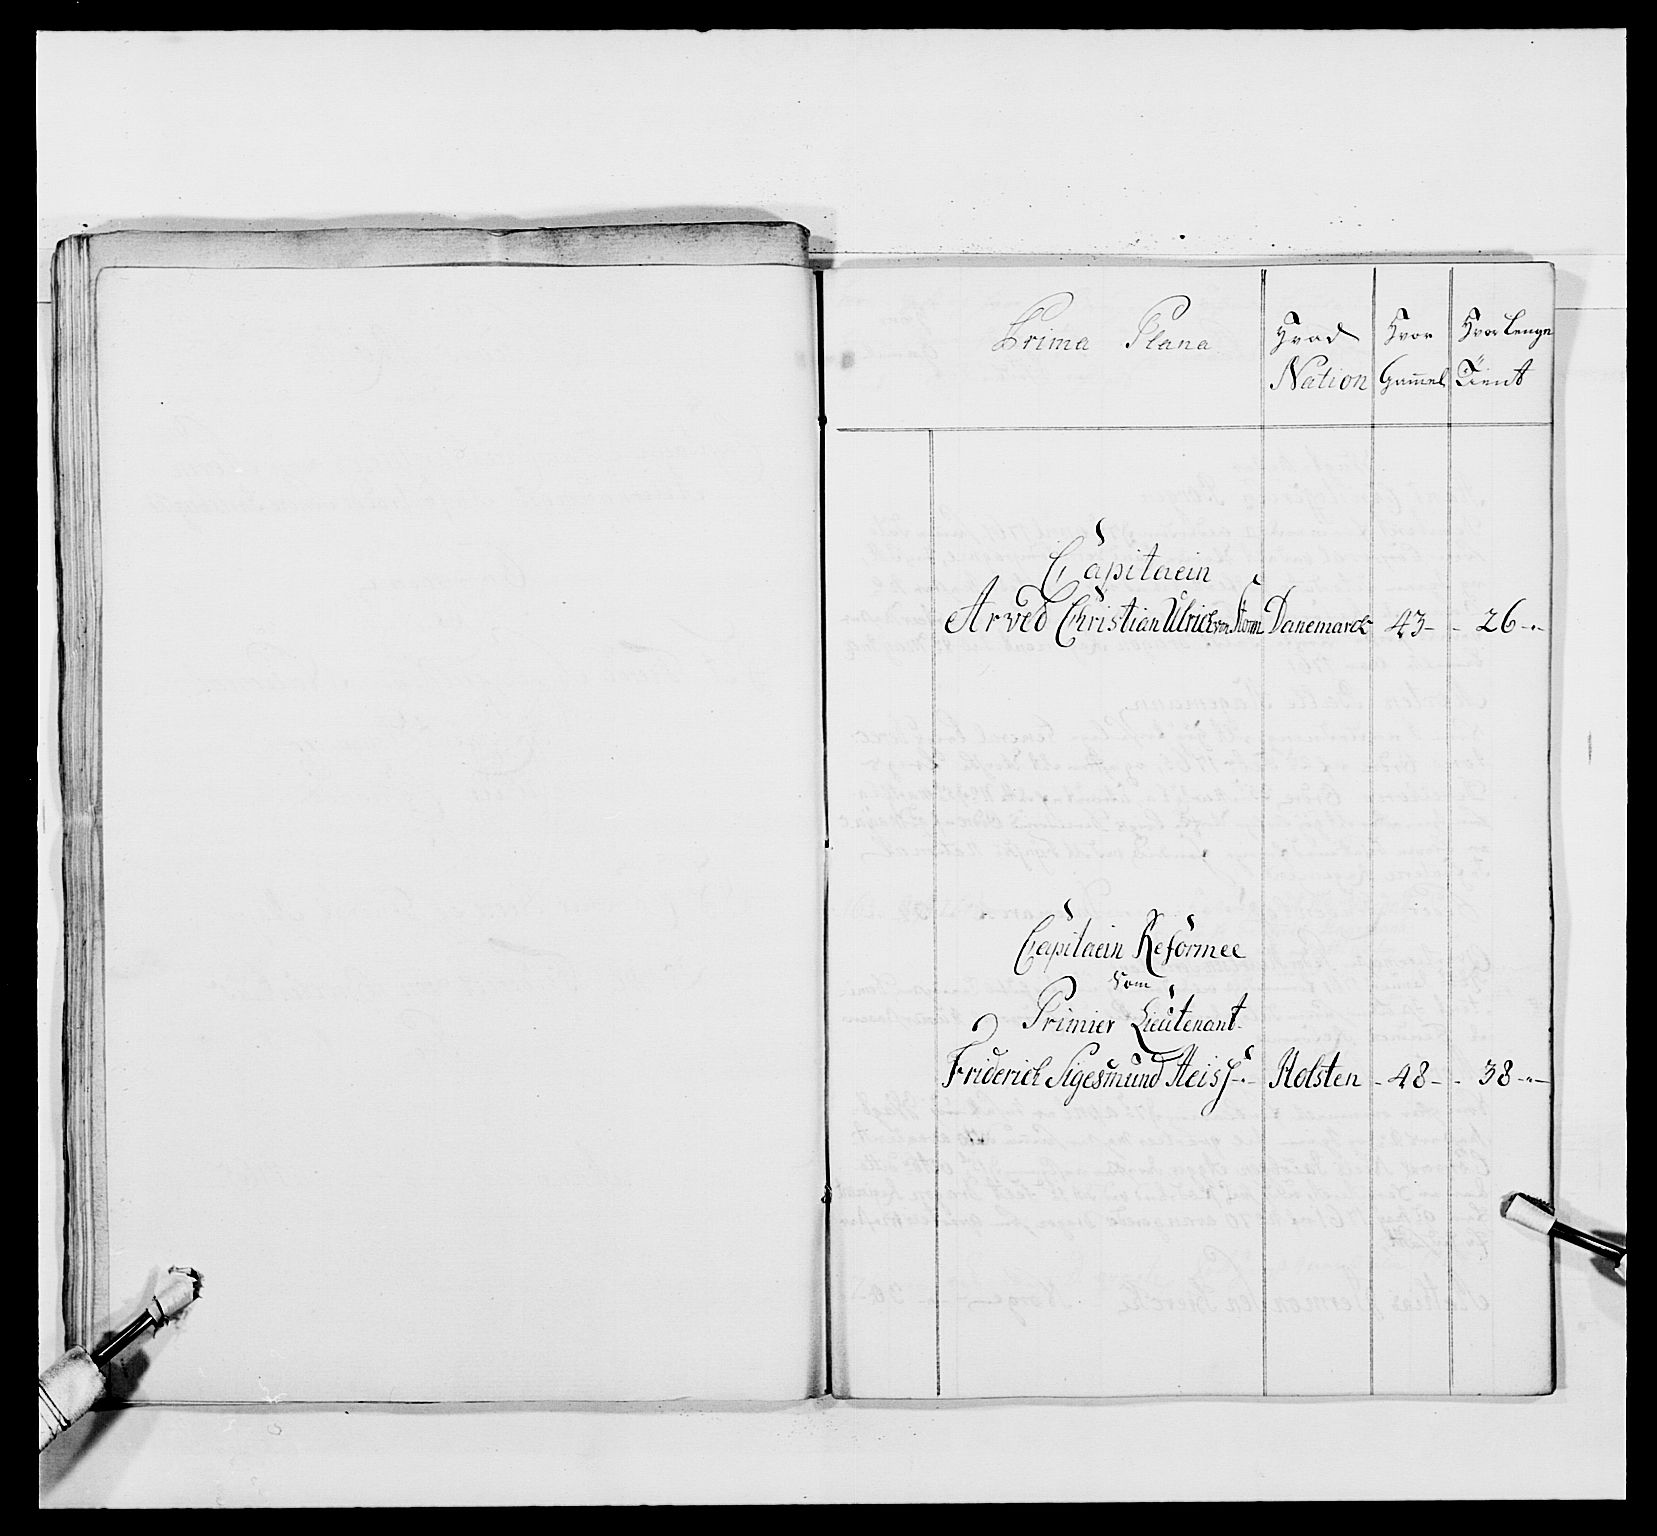 Prima Plana
Hvad Nation
Hvor Gam̄el
Hvor Lenge Tient
Capitaein
Arved Christian Ulrich von Storm Danemarck 43 - - 26 -
Capitaein Reformee
Som
Primier Lieutenant
Friderich Sigesmund Heisz - Holsten - 48 - - 38 -